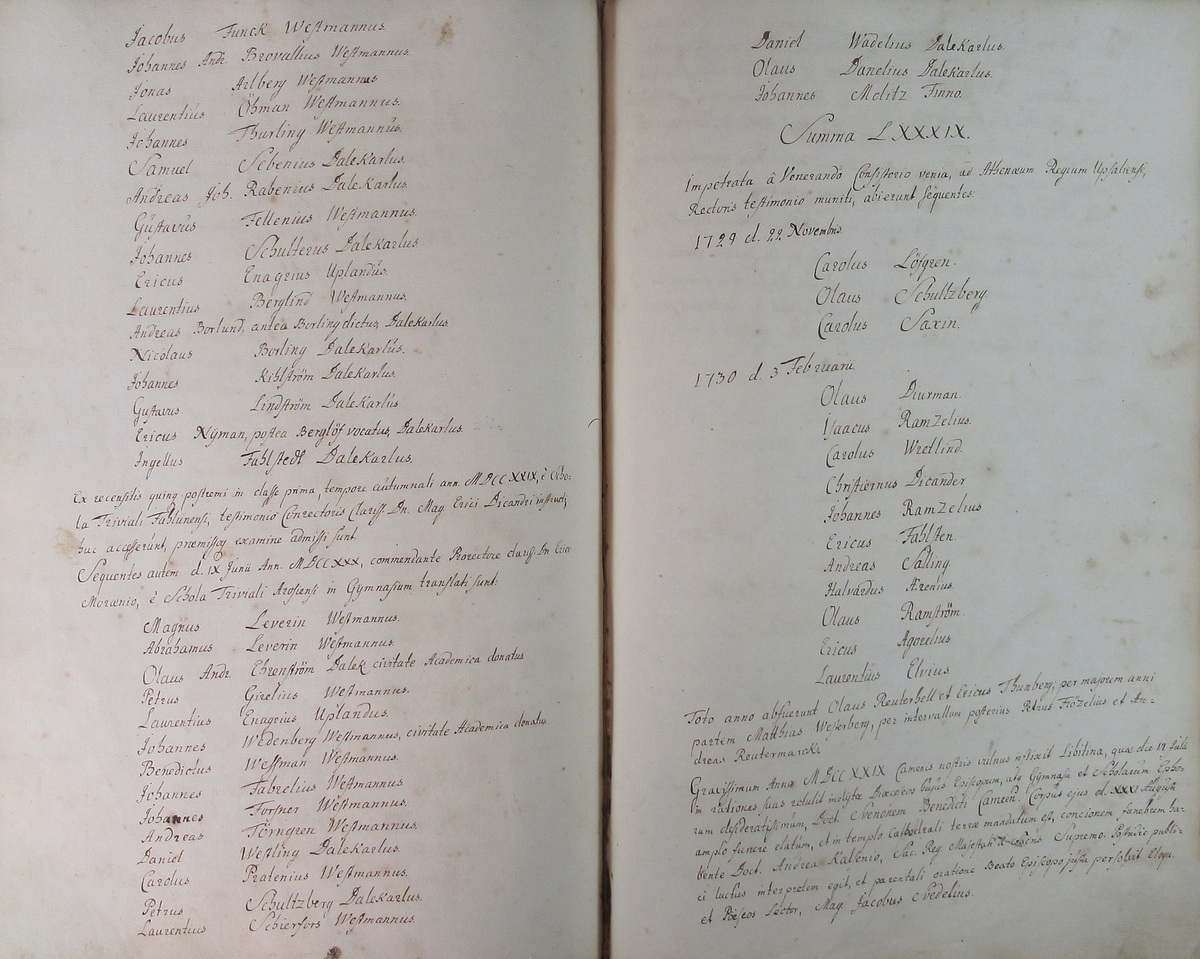 Jacobus Funck Westmannus.
Johannes Andr. Brovallius Westmannus.
Jonas Arlberg Westmannus
Laurentius Öhman Westmannus.
Johannes Thurling Westmannus.
Samuel Sebenius Dalekarlus.
Andreas Joh. Rabenius Dalekarlus.
Gustavus Fellenius Westmannus.
Johannes Schulterus Dalekarlus.
Ericus Enagrius Uplandus.
Laurentius Berglind Westmannus.
Andreas Borlund, antea Borling dictus, Dalekarlus.
Nicolaus Borling Dalekarlus.
Johannes Kihlström Dalekarlus.
Gustavus Lindström Dalekarlus
Ericus Nÿman, postea Berglöf vocatus, Dalekarlus.
Ingellus Fahlstedt Dalekarlus.
Ex recensitis quinq postremi in classe prima, tempore autumnali ann. MDCCXXIX, è Scho-
la Triviali Fahlunensi, testimonio Conrectoris Clariss. Dn. Mag. Erici Dicandri instructi,
huc accesserunt, præmissoq examine admissi sunt
Sequentes autem d. IX Junii Ann. MDCCXXX, commendante Prorectore clariss. Dn Erico
Morænio, è Schola Triviali Arosiensi in Gymnasium translati sunt:
Magnus Leverin Westmannus.
Abrahamus Leverin Westmannus.
Olaus Andr. Ehrenström Dalek. civitate Academica donatus
Petrus Girelius Westmannus.
Laurentius Enagrius Uplandus.
Johannes Wedenberg Westmannus, civitate Academica donatus
Benedictus Westman Westmannus.
Johannes Fabrelius Westmannus
Johannes Forsner Westmannus.
Andreas Törngren Westmannus.
Daniel Westling Dalekarlus.
Carolus Pratenius Westmannus.
Petrus Schultzberg Dalekarlus.
Laurentius Schierfors Westmannus.
Daniel Wadelius Dalekarlus.
Olaus Danelius Dalekarlus.
Johannes Melitz Finno.
Summa LXXXIX.
Impetrata â Venerando Consistorio venia, ad Athenæum Regium Upsaliense,
Rectoris testimonio muniti, abierunt sequentes:
1729 d. 22 Novembris
Carolus Löfgren.
Olaus Schultzberg.
Carolus Saxin.
1730 d. 3 Februarii
Olaus Diurman.
Isaacus Ramzelius.
Carolus Wretlind.
Christiernus Dicander
Johannes Ramzelius
Ericus Fahlsten.
Andreas Salling.
Halvardus Ærenius.
Olaus Ramström
Ericus Agorelius
Laurentius Elvius.
Toto anno abfuerunt Olaus Reuterhell et Ericus Thunberg; per majorem anni
partem Matthias Westerberg, per intervallum posterius Petrus Frözelius et An-
dreas Reutermarck.
Gravissimum Anno MDCCXXIX Camenis nostris vulnus inflixit Libitina, quæ die Julii
in rationes suas retulit inclytæ Dioeceseos hujus Episcopum, atq Gymnasii et Scholarum Epho-
rum desideratissimum, Doct. Svenonem Benedicti Cameen. Corpus ejus d. XXXI Augusti
amplo funere elatum, et in templo Cathedrali terræ mandatum est, concionem funebrem ha-
bente Doct. Andrea Kalsenio, Sac. Reg. Majestatis Supremo. Postridie publi-
ci luctus interpretem egit, et parentali oratione Beato Episcopo justa persolvit Eloqu.
et Poëseos Lector, Mag. Jacobus Svedelius.